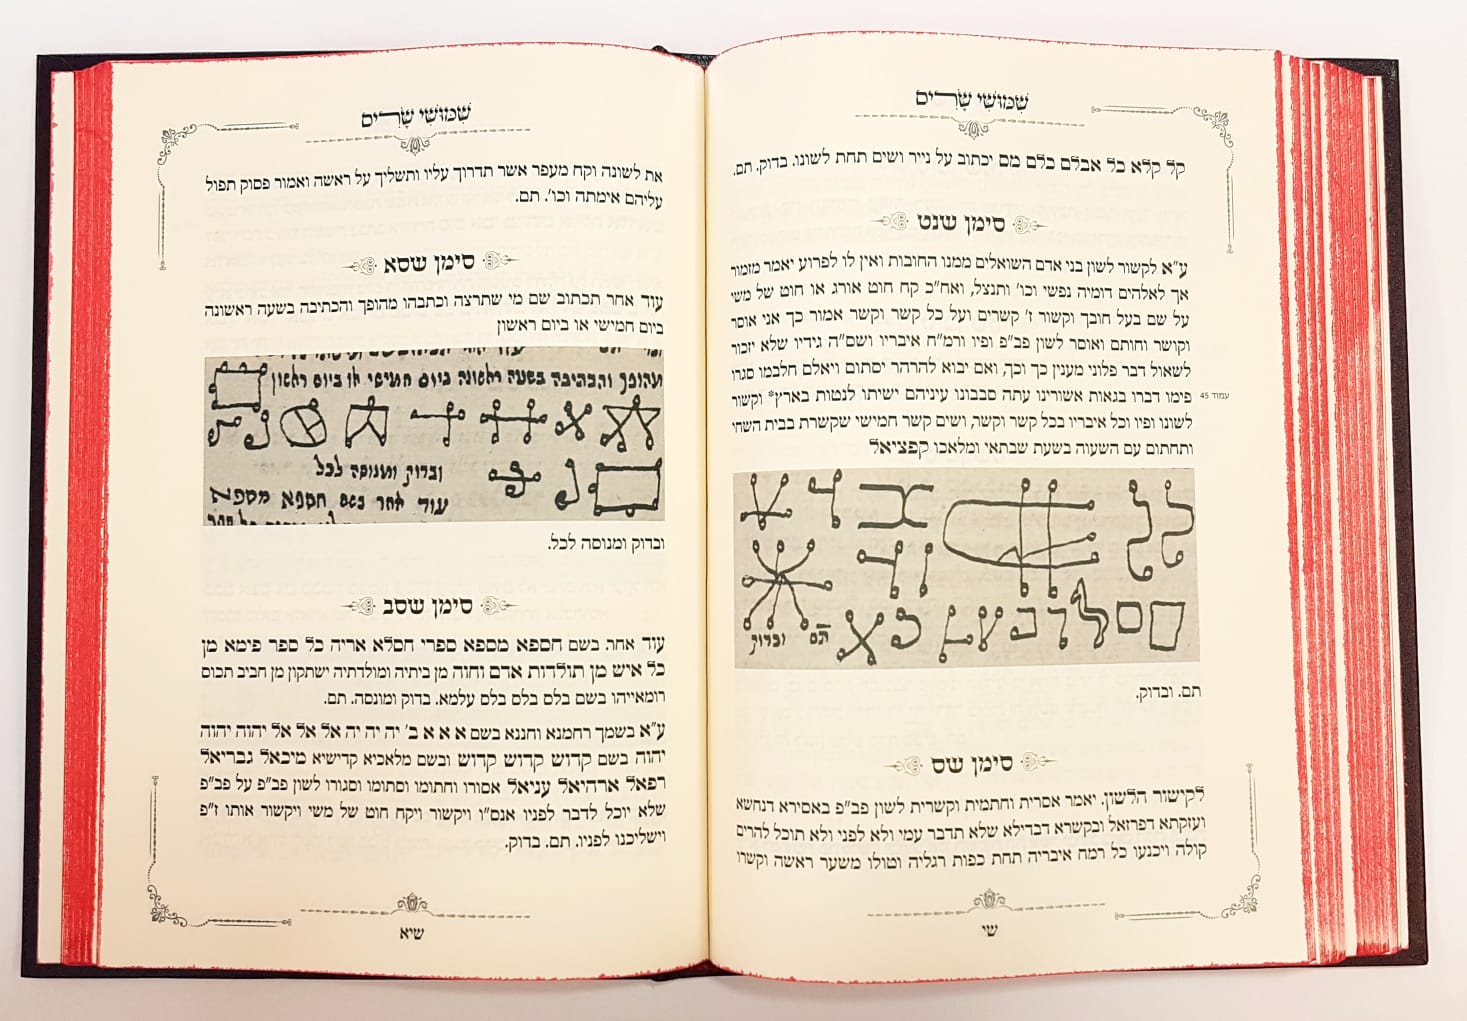 שמושי שָׂרִים
קל קלא כל אבלם כלם מס יכתוב על נייר ושים תחת לשונו. בדוק. תם.
סימן שנט
ע"א לקשור לשון בני אדם השואלים ממנו החובות ואין לו לפרוע יאמר מזמור
אך לאלהים דומיה נפשי וכו' ותנצל, ואח"כ קח חוט אורג או חוט של משי
על שם בעל חובך וקשור ז' קשרים ועל כל קשר וקשר אמור כך אני אוסר
וקושר וחותם ואוסר לשון פב"פ ופיו ורמ"ח איבריו ושס"ה גידיו שלא יזכור
לשאול דבר פלוני מענין כך וכך, ואם יבוא להרהר יסתום ויאלם חלבמו סגרו
פימו דברו בגאות אשורינו עתה סבבונו עיניהם ישיתו לנטות בארץ* וקשור
עמוד 45
לשונו ופיו וכל איבריו בכל קשר וקשר, ושים קשר חמישי שקשרת בבית השחי
ותחתום עם השעוה בשעת שבתאי ומלאכו קפציאל
תם ובדוק
תם. ובדוק.
סימן שס
לקישור הלשון. יאמר אסרית וחתמית וקשרית לשון פב"פ באסירא דנחשא
ועזקתא דפרזאל ובקשרא דבדילא שלא תדבר עמי ולא לפני ולא תוכל להרים
קולה ויכנעו כל רמח איבריה תחת כפות רגליה וטולו משער ראשה וקשרו
שי
שמושי שָׂרִים
את לשונה וקח מעפר אשר תדרוך עליו ותשליך על ראשה ואמור פסוק תפול
עליהם אימתה וכו'. תם.
סימן שסא
עוד אחר תכתוב שם מי שתרצה וכתבהו מהופך והכתיבה בשעה ראשונה
ביום חמישי או ביום ראשון
מהופך והכתיבה בשעה ראשונה ביום חמישי או ביום ראשון
ובדוק ומנוסה לכל
עוד אחר בשם חספא מספא
ובדוק ומנוסה לכל.
סימן שסב
עוד אחר. בשם חספא מספא ספרי חסלא אריה כל ספר פימא מן
כל איש מן תולדות אדם וחוה מן ביתיה ומולדתיה ישתקון מן חביב תכוס
רומאייהו בשם בלס בלס בלס עלמא. בדוק ומונסה. תם.
ע"א בשמך רחמנא וחננא בשם א א א ב' יה יה יה אל אל אל יהוה יהוה
יהוה בשם קדוש קדוש קדוש ובשם מלאכיא קדישיא מיכאל גבריאל
רפאל ארהיאל עניאל אסורו וחתומו וסתומו וסגורו לשון פב"פ על פב"פ
שלא יוכל לדבר לפניו אנס"ו ויקשור ויקח חוט של משי ויקשור אותו ז"פ
וישליכנו לפניו. תם. בדוק.
שיא